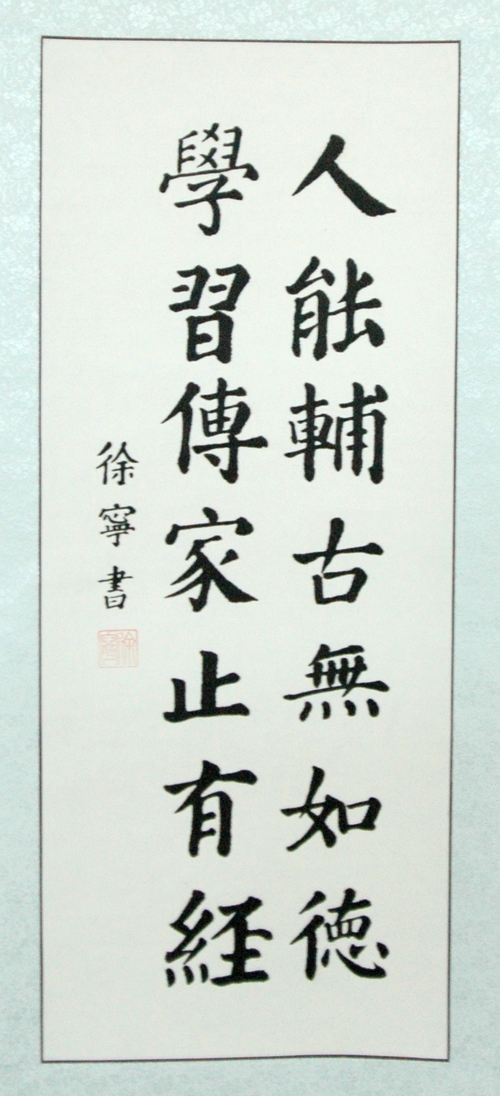 人能輔古無如德
學習傳家止有經
徐寧書
徐寧